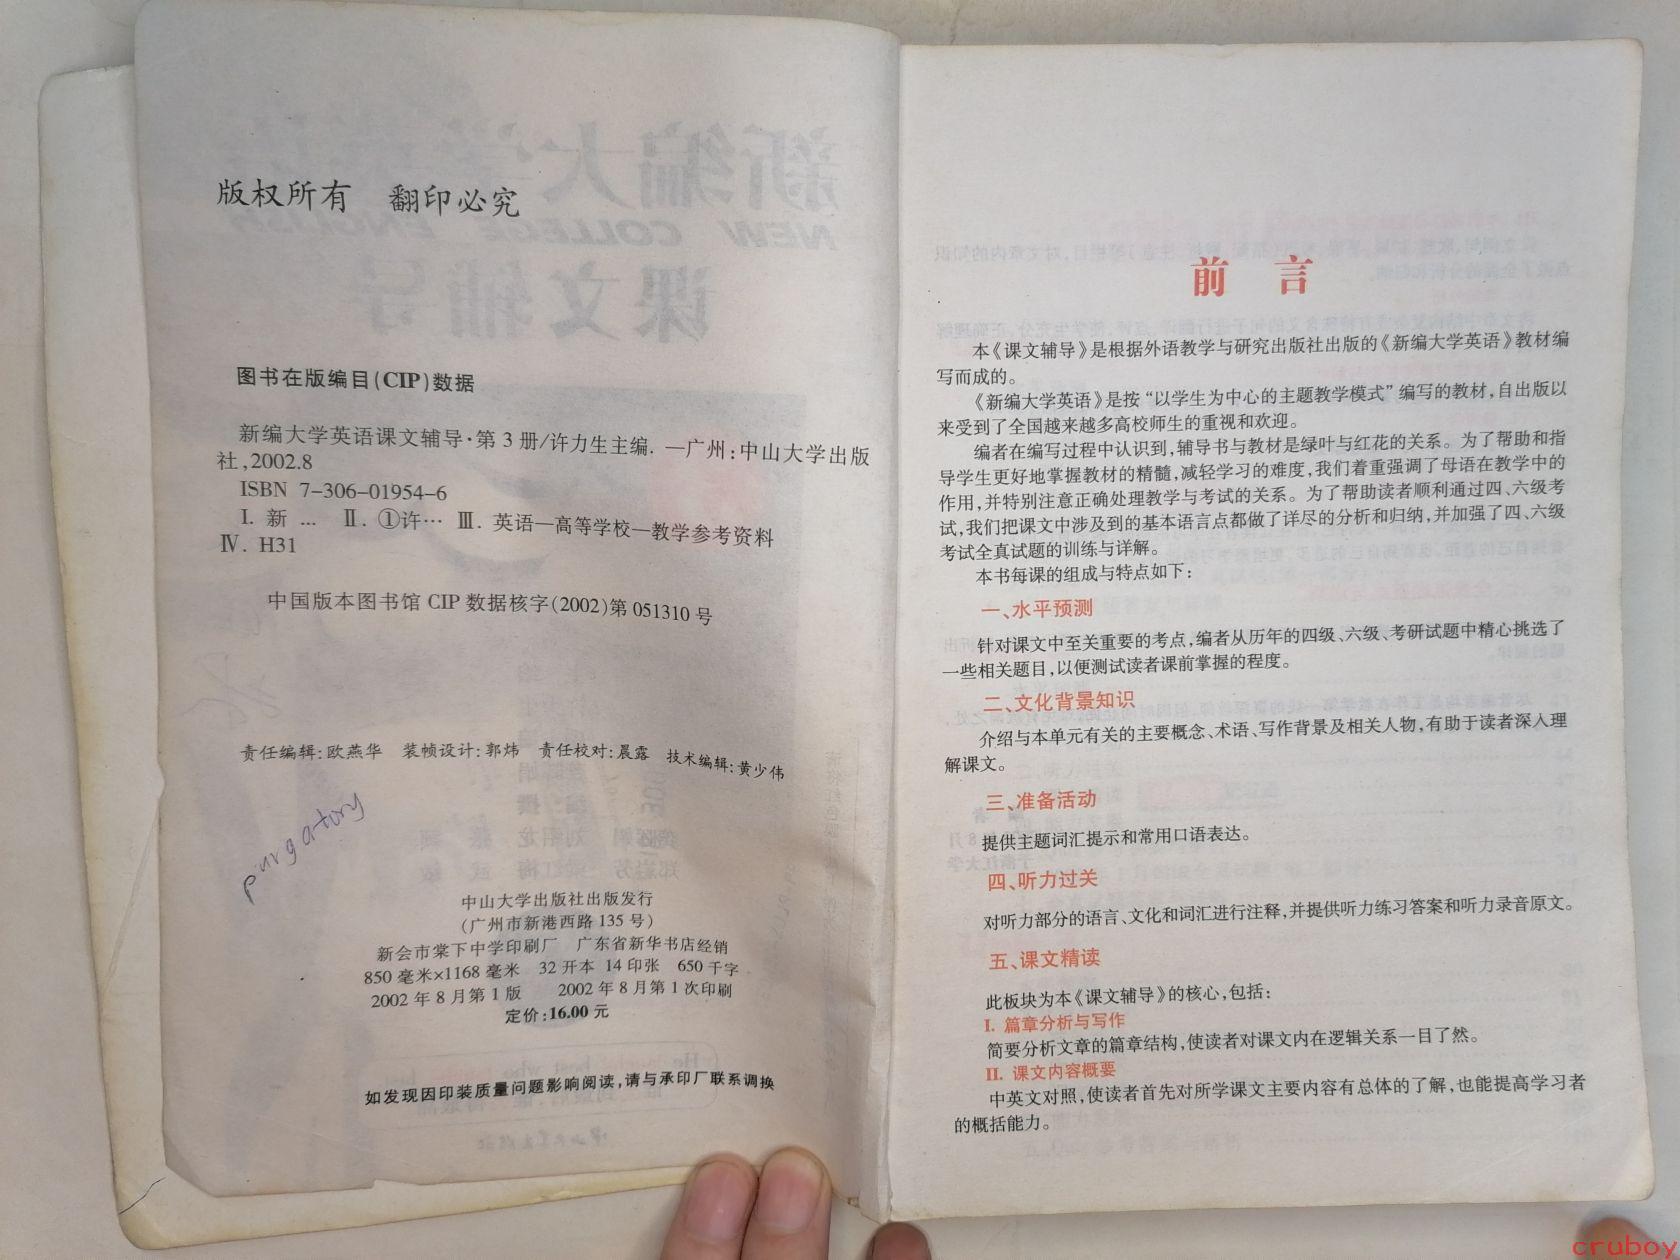 版权所有 翻印必究
图书在版编目(CIP)数据
新编大学英语课文辅导·第3册/许力生主编. —广州:中山大学出版
社,2002.8
ISBN 7-306-01954-6
Ⅰ. 新 … Ⅱ. ①许… Ⅲ. 英语—高等学校—教学参考资料
Ⅳ. H31
中国版本图书馆CIP数据核字(2002)第051310号
责任编辑:欧燕华 装帧设计:郭炜 责任校对:晨露 技术编辑:黄少伟
purgatory
中山大学出版社出版发行
(广州市新港西路135号)
新会市棠下中学印刷厂 广东省新华书店经销
850毫米×1168毫米 32开本 14印张 650千字
2002年8月第1版 2002年8月第1次印刷
定价:16.00元
如发现因印装质量问题影响阅读,请与承印厂联系调换
前 言
本《课文辅导》是根据外语教学与研究出版社出版的《新编大学英语》教材编
写而成的。
《新编大学英语》是按“以学生为中心的主题教学模式”编写的教材,自出版以
来受到了全国越来越多高校师生的重视和欢迎。
编者在编写过程中认识到,辅导书与教材是绿叶与红花的关系。为了帮助和指
导学生更好地掌握教材的精髓,减轻学习的难度,我们着重强调了母语在教学中的
作用,并特别注意正确处理教学与考试的关系。为了帮助读者顺利通过四、六级考
试,我们把课文中涉及到的基本语言点都做了详尽的分析和归纳,并加强了四、六级
考试全真试题的训练与详解。
本书每课的组成与特点如下:
一、水平预测
针对课文中至关重要的考点,编者从历年的四级、六级、考研试题中精心挑选了
一些相关题目,以便测试读者课前掌握的程度。
二、文化背景知识
介绍与本单元有关的主要概念、术语、写作背景及相关人物,有助于读者深入理
解课文。
三、准备活动
提供主题词汇提示和常用口语表达。
四、听力过关
对听力部分的语言、文化和词汇进行注释,并提供听力练习答案和听力录音原文。
五、课文精读
此板块为本《课文辅导》的核心,包括:
Ⅰ. 篇章分析与写作
简要分析文章的篇章结构,使读者对课文内在逻辑关系一目了然。
Ⅱ. 课文内容概要
中英文对照,使读者首先对所学课文主要内容有总体的了解,也能提高学习者
的概括能力。
cruboy